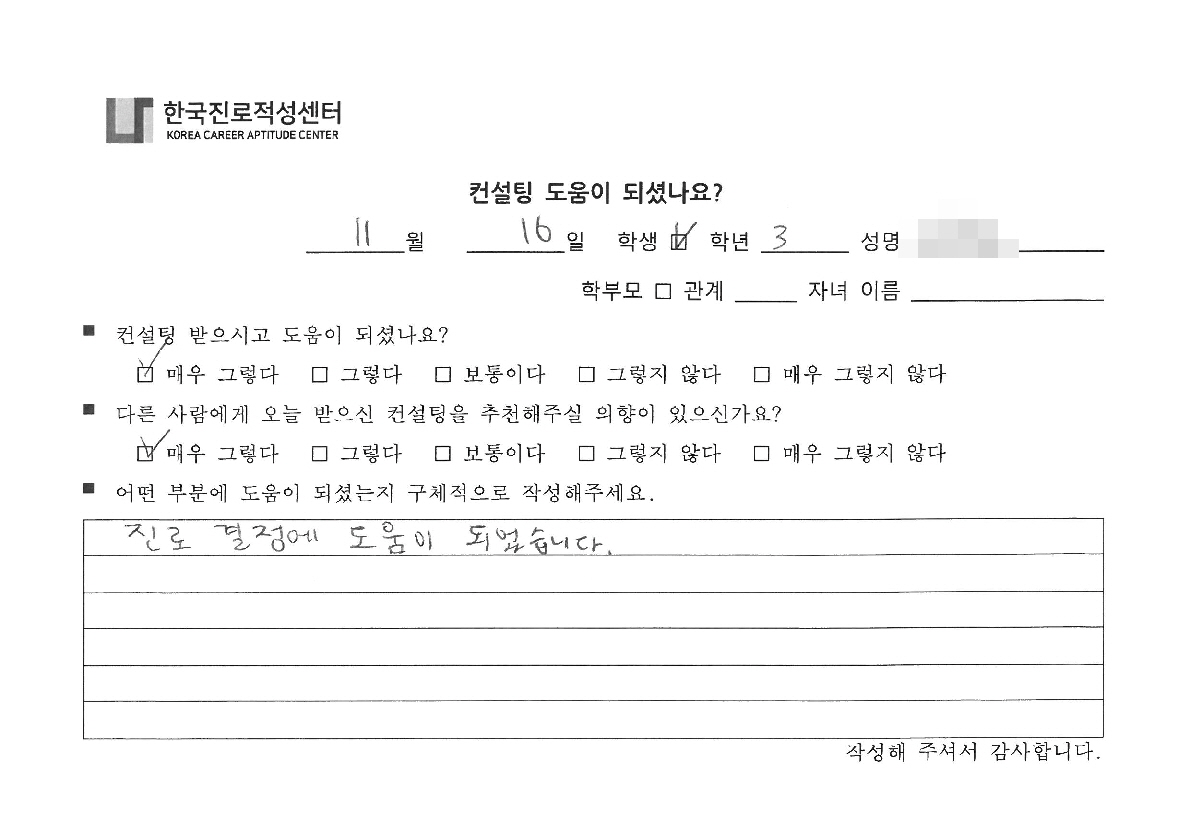 한국진로적성센터
KOREA CAREER APTITUDE CENTER
컨설팅 도움이 되셨나요?
11 월 16 일 학생 ☑ 학년 3 성명
학부모 □ 관계 자녀 이름
■ 컨설팅 받으시고 도움이 되셨나요?
☑ 매우 그렇다 □ 그렇다 □ 보통이다 □ 그렇지 않다 □ 매우 그렇지 않다
■ 다른 사람에게 오늘 받으신 컨설팅을 추천해주실 의향이 있으신가요?
☑ 매우 그렇다 □ 그렇다 □ 보통이다 □ 그렇지 않다 □ 매우 그렇지 않다
■ 어떤 부분에 도움이 되셨는지 구체적으로 작성해주세요.
진로 결정에 도움이 되었습니다.
작성해 주셔서 감사합니다.